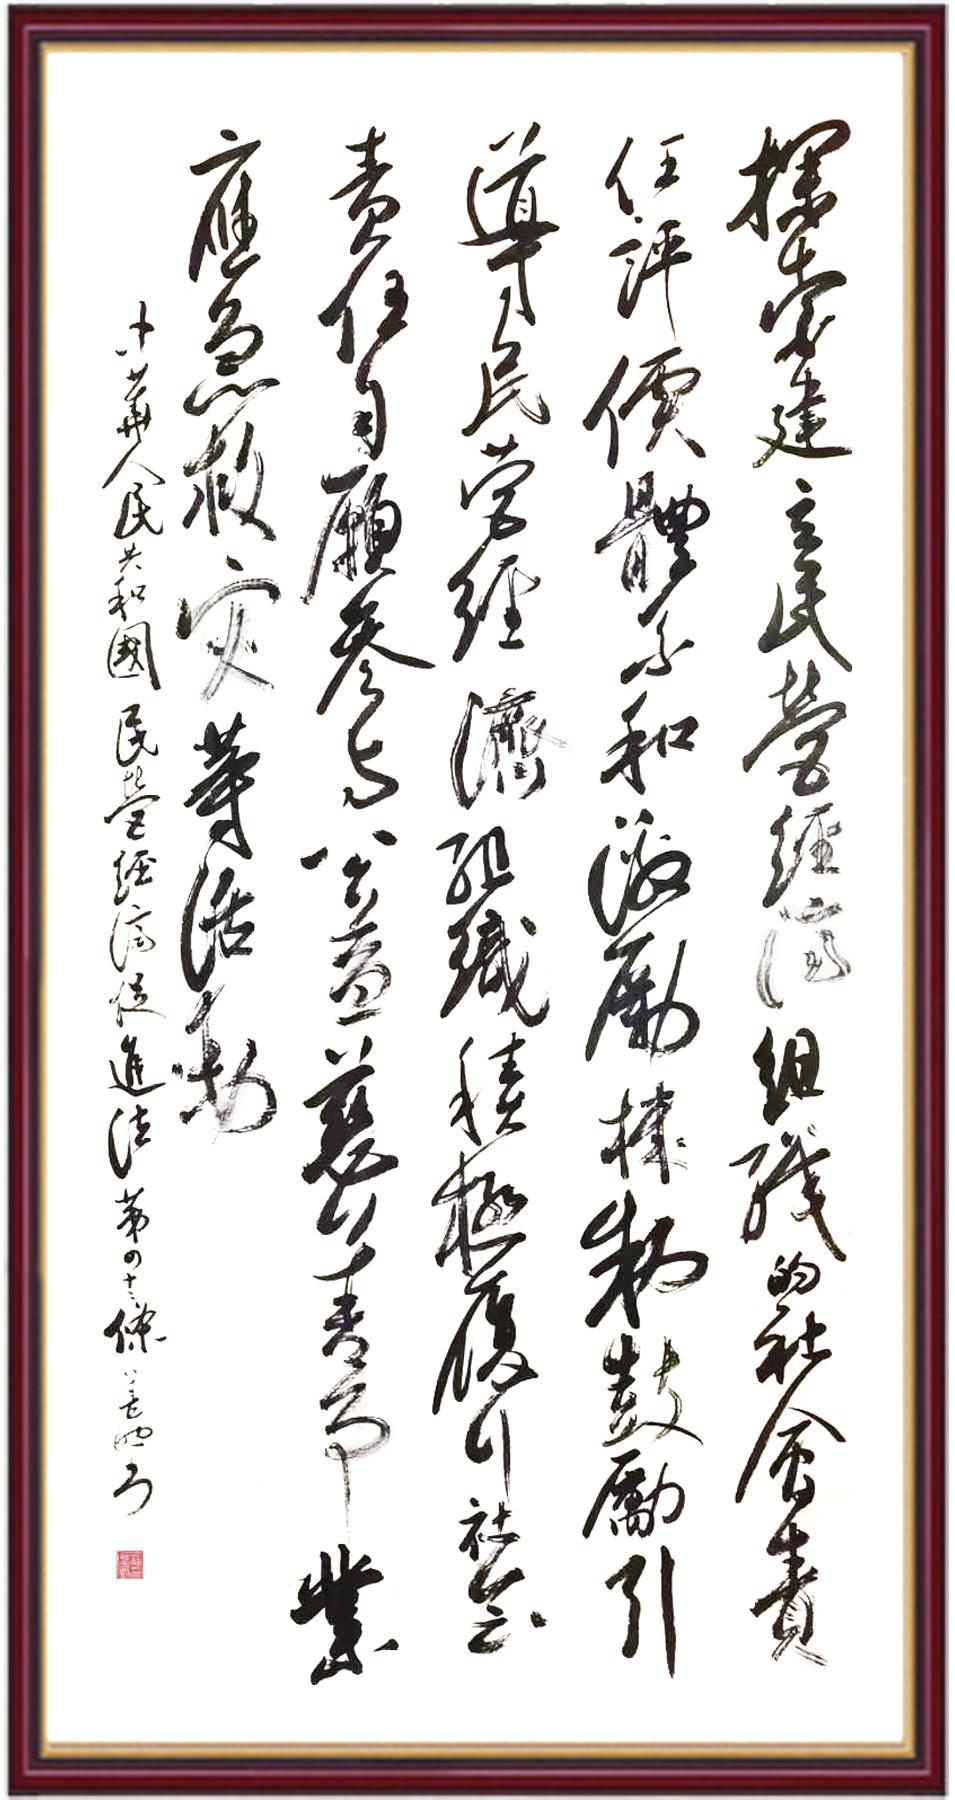 探索建立民營經濟組織的社會責
任評價體系和激勵機制鼓勵引
導民营經濟組織積極履行社会
責任自願參与公益慈善事業
應急救灾等活動
中華人民共和國民營經濟促進法第四十三條